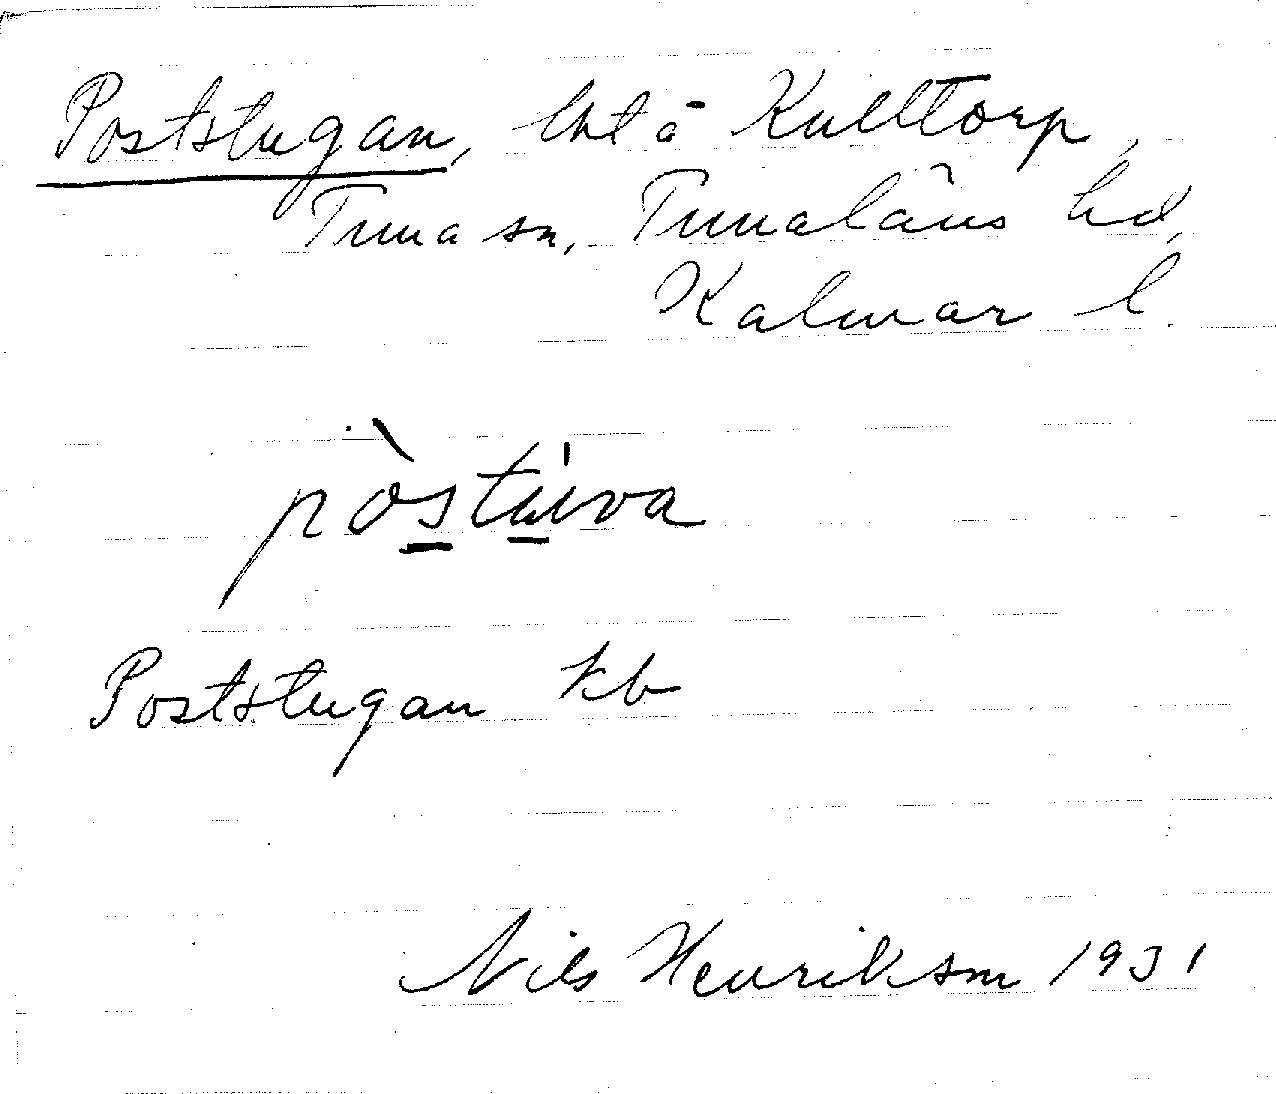 Poststugan, lht å Kulltorp,
Tuna sn, Tunaläns hd,
Kalmar l.
pòstu̇va
Poststugan kb
Nils Henrikson 1931